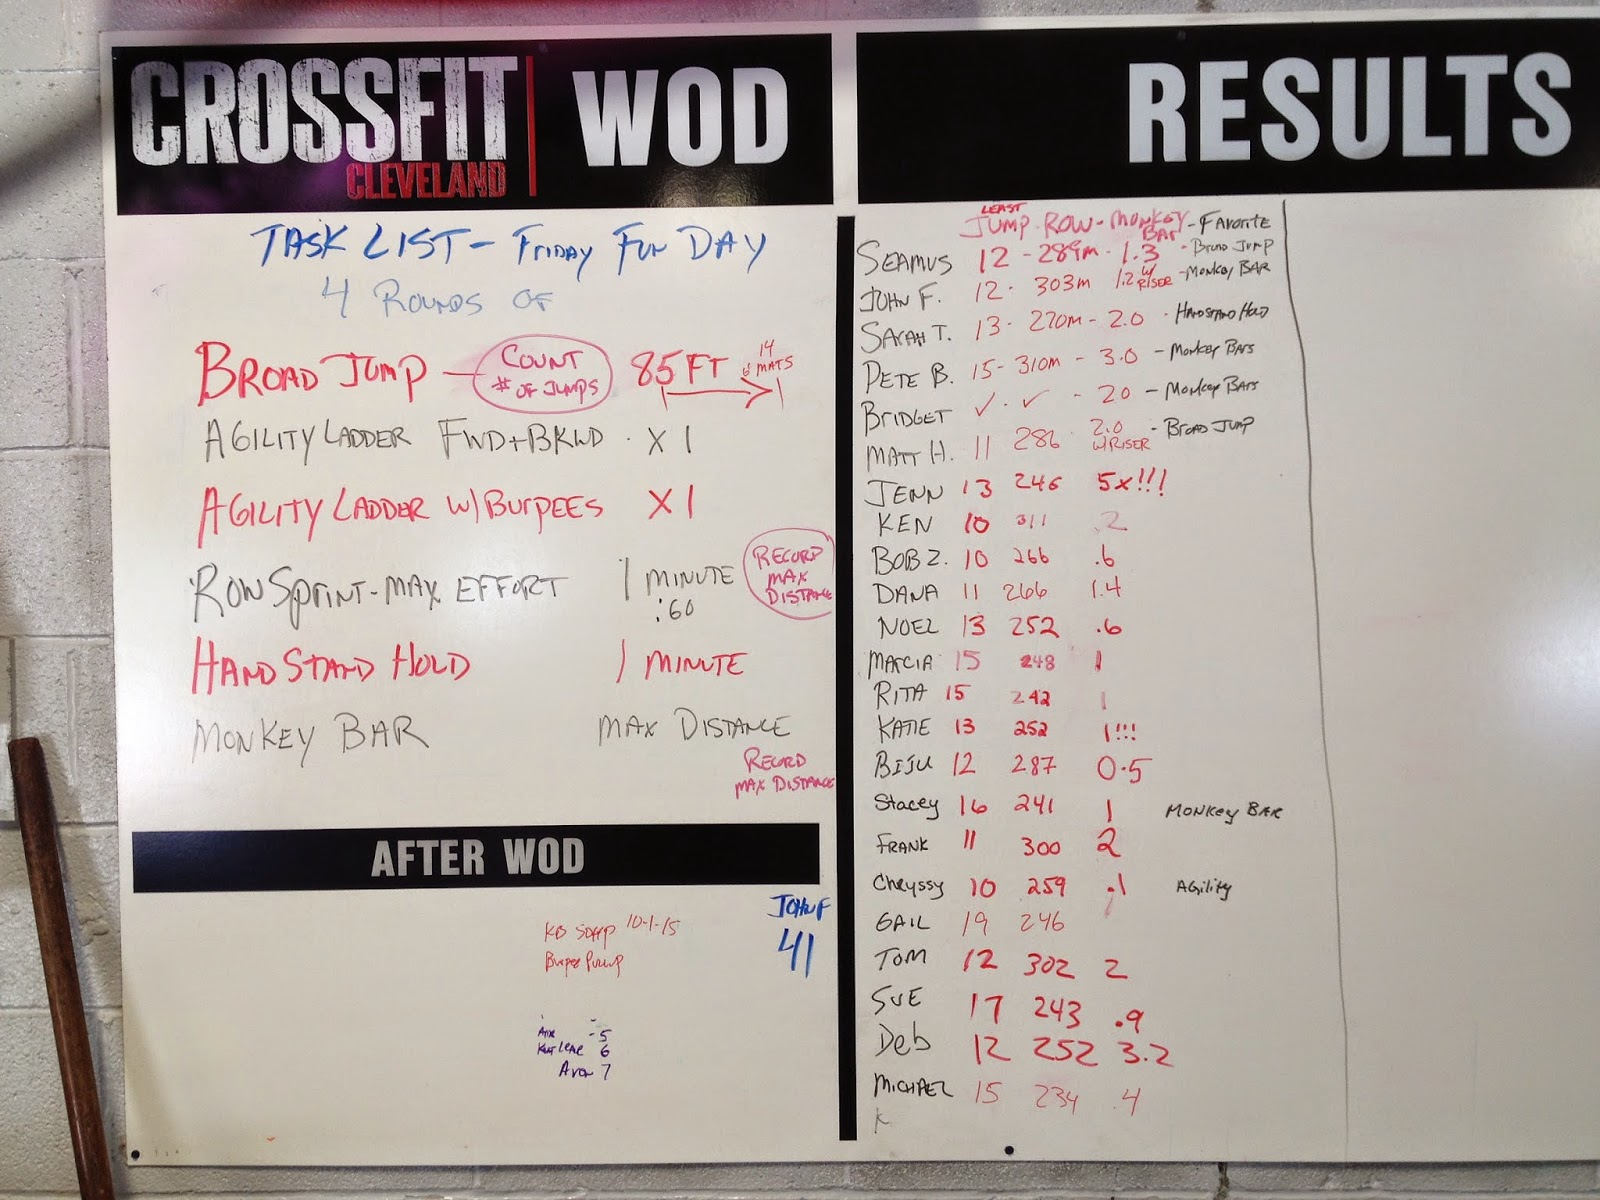 CROSSFIT
CLEVELAND
WOD
TASK LIST - FRIDAY FUN DAY
4 ROUNDS OF
BROAD JUMP - COUNT # OF JUMPS 85 FT 14 MATS
AGILITY LADDER FWD+BKWD X 1
AGILITY LADDER W/BURPEES X 1
ROW SPRINT - MAX EFFORT 1 MINUTE :60 RECORD MAX DISTANCE
HAND STAND HOLD 1 MINUTE
MONKEY BAR MAX DISTANCE
RECORD
MAX DISTANCE
AFTER WOD
JOHN F
41
KB SDHP 10-1-15
Burpee Pullup
- 5
6
7
RESULTS
LEAST
JUMP - ROW - MONKEY BAR - FAVORITE
SEAMUS 12 - 289m - 1.3 - BROAD JUMP
JOHN F. 12 - 303m 1.2 W RISER - MONKEY BAR
SARAH T. 13 - 270m - 2.0 - HANDSTAND HOLD
PETE B. 15 - 310m - 3.0 - MONKEY BARS
BRIDGET ✓ - ✓ - 2.0 - MONKEY BARS
MATT H. 11 286 2.0 W/RISER - BROAD JUMP
JENN 13 246 5x!!!
KEN 10 311 .2
BOB Z. 10 266 .6
DANA 11 266 1.4
NOEL 13 252 .6
MARCIA 15 248 1
RITA 15 242 1
KATIE 13 252 1!!!
BIJU 12 287 0.5
Stacey 16 241 1 MONKEY BAR
FRANK 11 300 2
Chryssy 10 259 .1 AGility
GAIL 19 246
TOM 12 302 2
SUE 17 243 .9
Deb 12 252 3.2
MICHAEL 15 234 .4
K